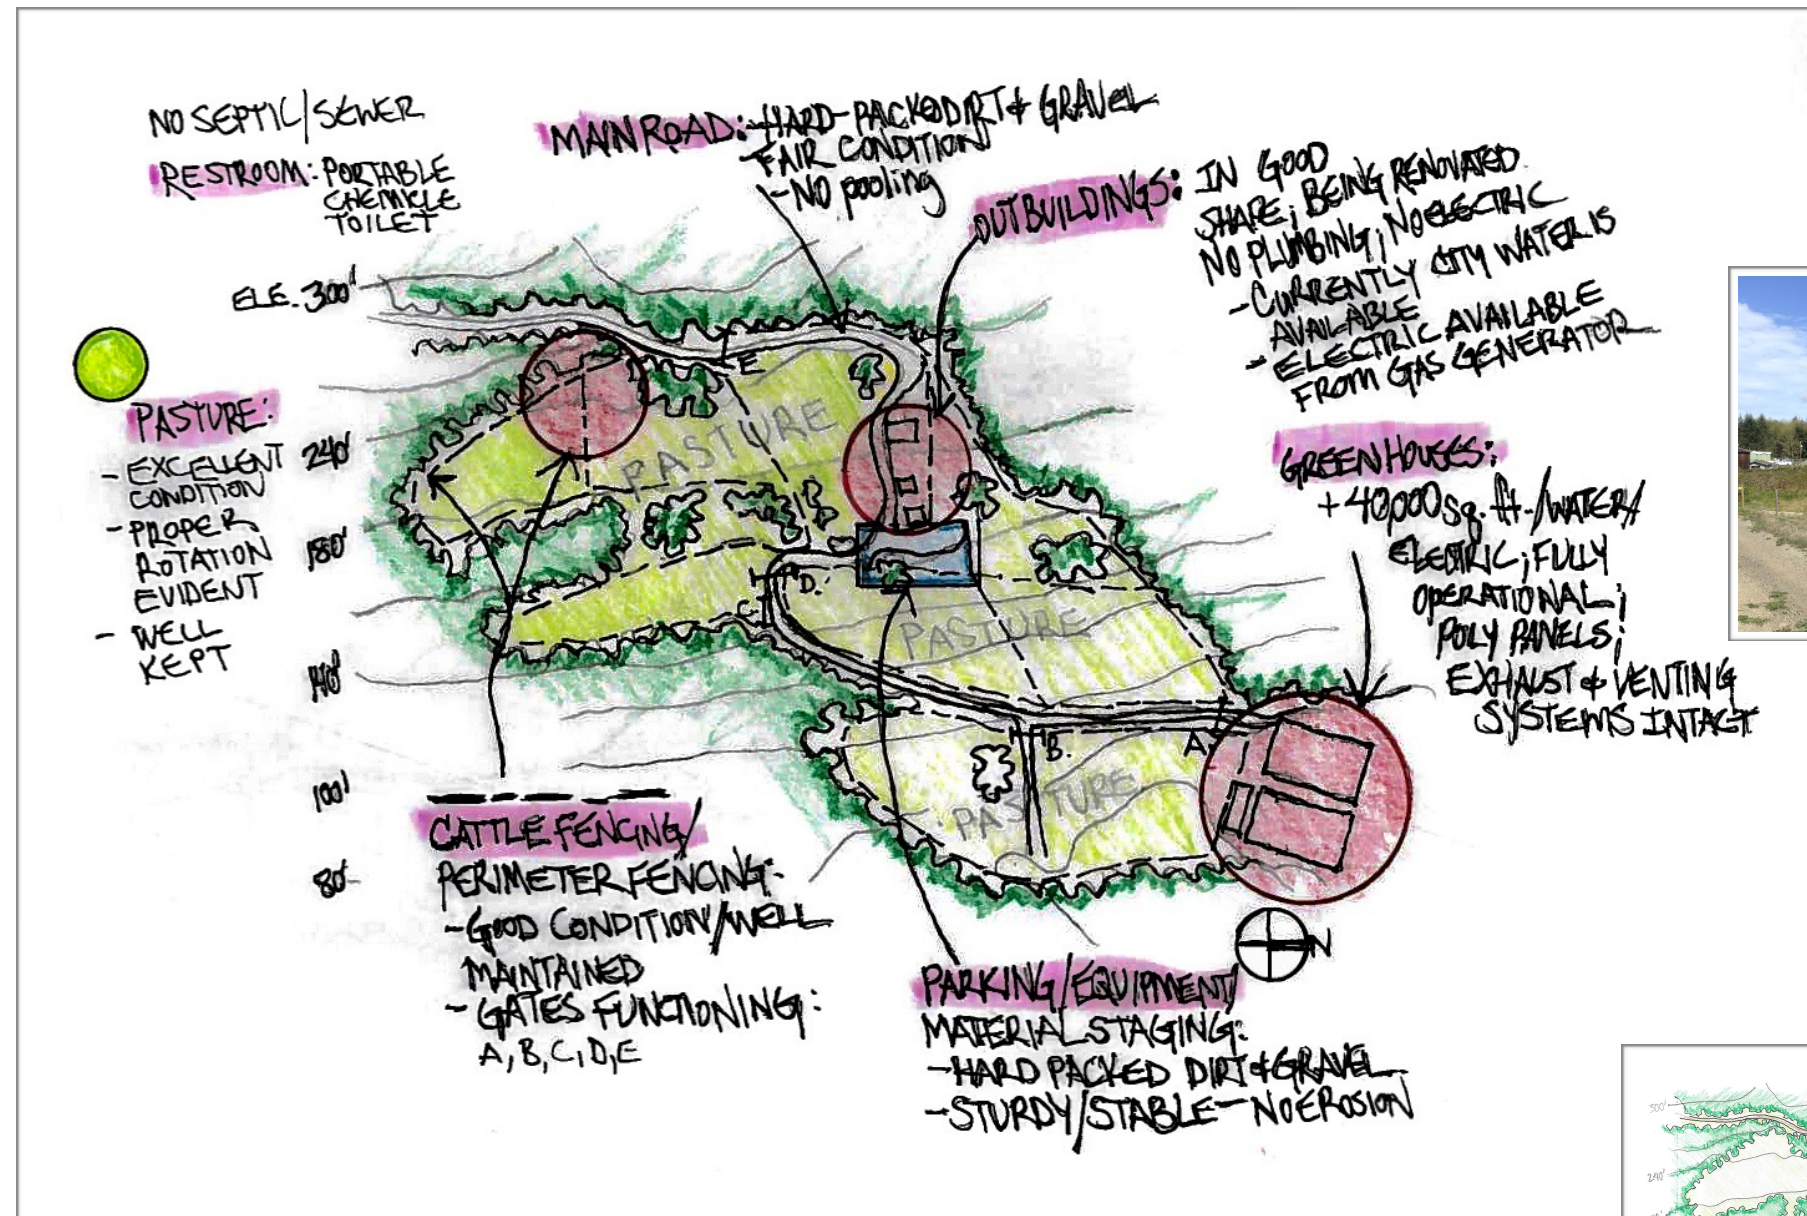 NO SEPTIC/SEWER
RESTROOM: PORTABLE
CHEMICLE
TOILET
MAIN ROAD: -HARD-PACKED DIRT & GRAVEL
-FAIR CONDITION
-NO pooling
OUTBUILDINGS: IN GOOD
SHAPE; BEING RENOVATED
NO PLUMBING; NO ELECTRIC
-CURRENTLY CITY WATER IS
AVAILABLE
-ELECTRIC AVAILABLE
FROM GAS GENERATOR
ELE. 300'
240'
180'
140'
100'
80'
PASTURE:
- EXCELLENT
CONDITION
- PROPER
ROTATION
EVIDENT
- WELL
KEPT
GREENHOUSES:
+40,000 sq. ft./WATER/
ELECTRIC; FULLY
OPERATIONAL;
POLY PANELS;
EXHAUST & VENTING
SYSTEMS INTACT
E
PASTURE
D.
C.
PASTURE
B.
A.
PASTURE
N
CATTLE FENCING/
PERIMETER FENCING:
-GOOD CONDITION/WELL
MAINTAINED
- GATES FUNCTIONING:
A, B, C, D, E
PARKING/EQUIPMENT/
MATERIAL STAGING:
-HARD PACKED DIRT & GRAVEL
-STURDY/STABLE - NO EROSION
300'
240'